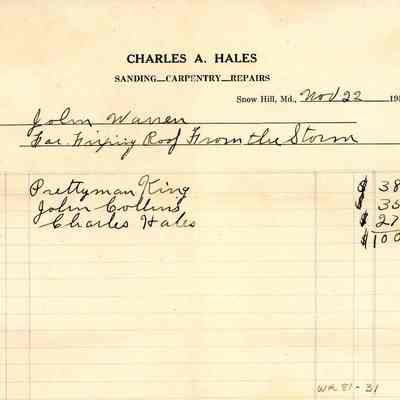 CHARLES A. HALES
SANDING—CARPENTRY—REPAIRS
Snow Hill, Md., Nov 22 195
John Warren
For Fixing Roof From the Storm
Prettyman King $ 38
John Collins $ 35
Charles Hales $ 27
$100
WR 81-31